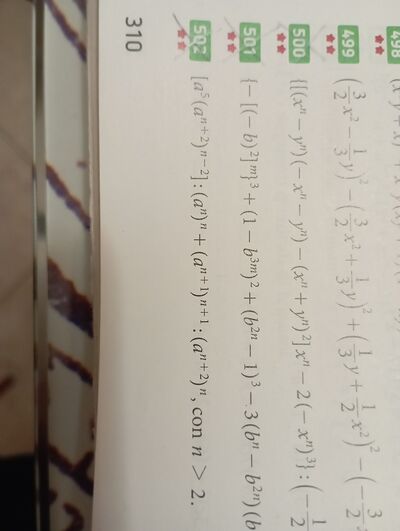 498
499 (3/2 x² − 1/3 y)² − (3/2 x² + 1/3 y)² + (1/3 y + 1/2 x²)² − (−3/2
500 {[(xⁿ − yⁿ)(−xⁿ − yⁿ) − (xⁿ + yⁿ)²]xⁿ − 2(−xⁿ)³} : (−1/2
501 {−[(−b)²]ᵐ}³ + (1 − b³ᵐ)² + (b²ⁿ − 1)³ − 3(bⁿ − b²ⁿ)(b
502 [a⁵(aⁿ⁺²)ⁿ⁻²] : (aⁿ)ⁿ + (aⁿ⁺¹)ⁿ⁺¹ : (aⁿ⁺²)ⁿ, con n > 2.
310